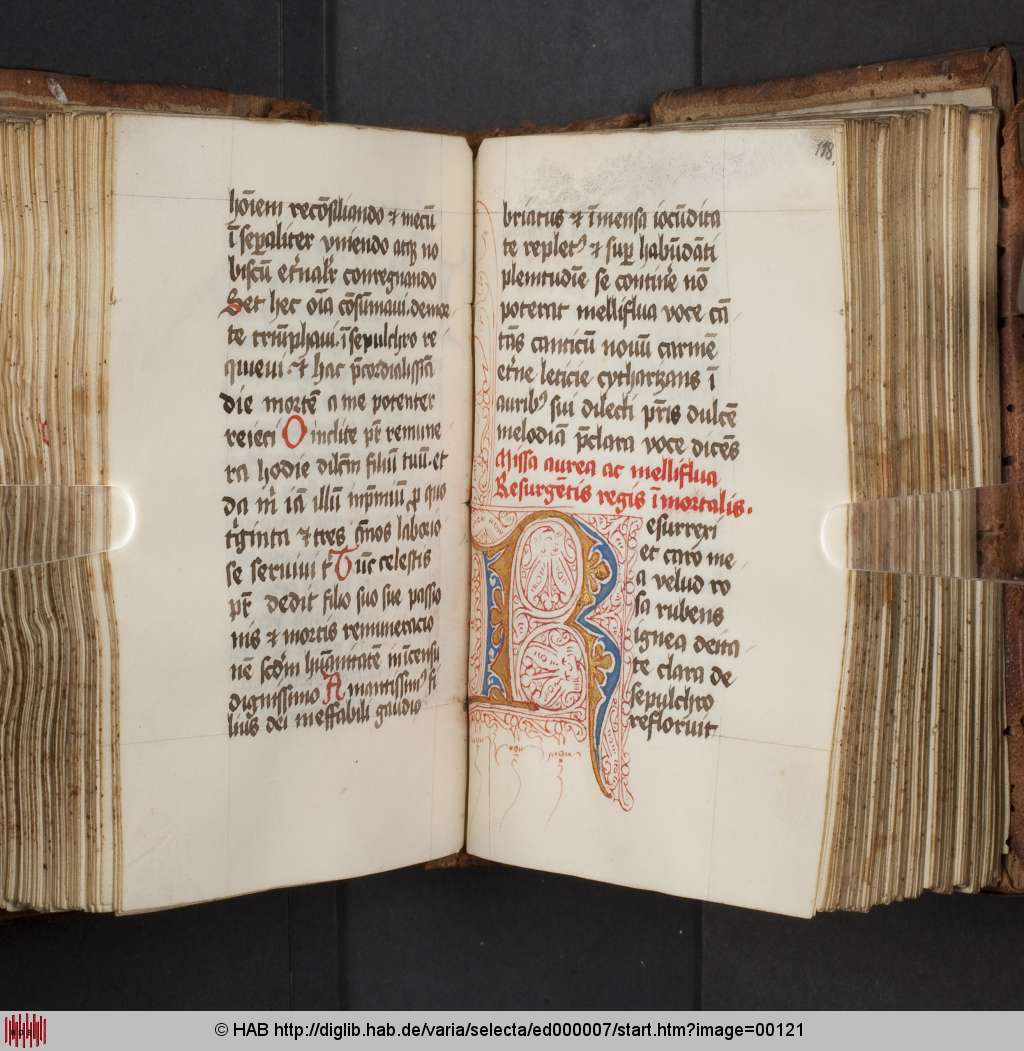 hōiem recōsiliando ⁊ mecū
ī sepꝑaliter vniendo atqꝫ no
biscū et̓nalit̓ conregnando
Set hec oīa cōsūmaui. de mor
te triūphaui. ī sepulchro re
quieui. et hac p̄cordialissīa
die mortē a me potenter
reieci O inclite pr̄ remune
ra hodie dilcm̄ filiū tuū. et
da m̄ iā illā mp̄miū, ꝓ quo
t̓ginta ⁊ tres ānos laborio
se seruiui t̄ Tūc celestis
pr̄ dedit filio suo sue passio
nis ⁊ mortis remuneracio
nē scdm̄ hūanitatē īmensu
dignissimo Amantissim᷒ fi
lius dei ineffabili gaudio
118.
briatus ⁊ īmensa iocūdita
te replet᷒ ⁊ suꝑ habūdāti
plenitudīe se contin̓e nō
poterat melliflua voce cā
tās canticū nouū carmē
et̓ne leticie cytharizans ī
aurib᷒ sui dilecti pr̄is dulcē
melodiā p̄clara voce dicēs
Missa aurea ac melliflua
Resurgētis regis īmortalis.
Resurrexi
et caro me
a velud ro
sa rubens
ignea deita
te clara de
sepulchro
refloruit
© HAB http://diglib.hab.de/varia/selecta/ed000007/start.htm?image=00121